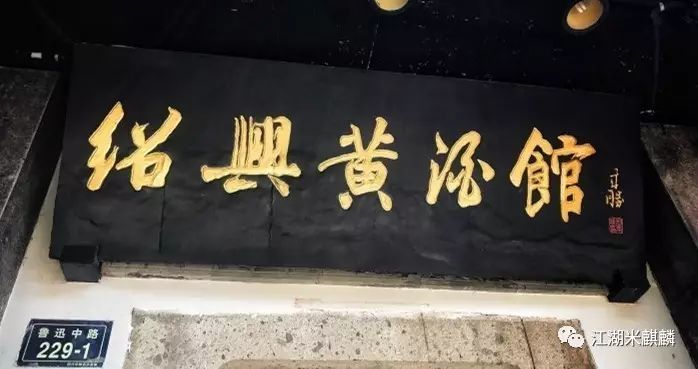 绍興黄酒館
魯迅中路
229-1
江湖米麒麟